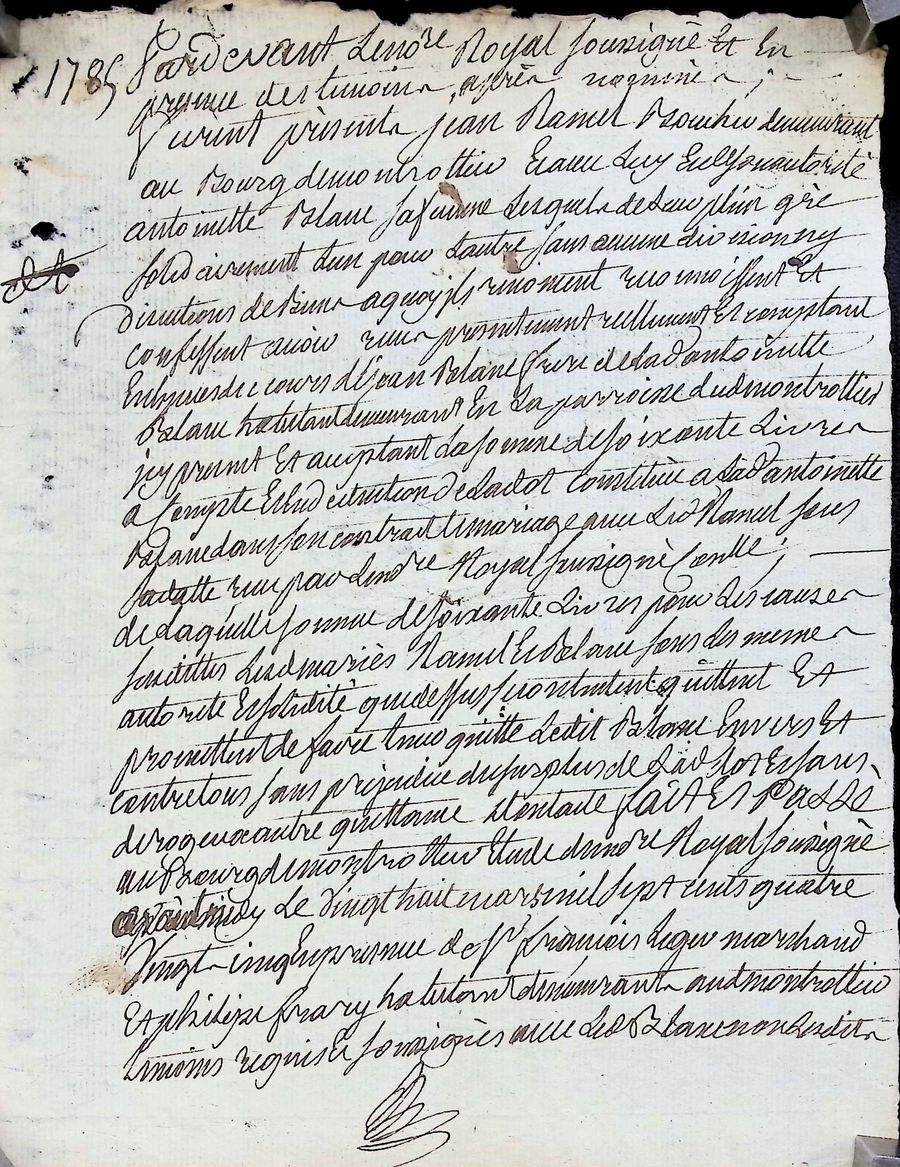 1785 Pardevant Le nore Royal soussigné Et En
presence des temoins après nommés ;
furent présents jean Ramel Boucher demeurant
au Bourg de montrottier Et avec Luy En Son autorité
antoinette Blanc sa femme Lesquels de Leur plein gré
solidairement L'un pour L'autre sans aucune division ny
discutions de Biens a quoy ils renoncent reconnoissent Et
confessent avoir reçu présentement reellement Et comptant
En Especes de cours de jean Blanc frere de Lad antoinette
Blanc habitant demeurant En La parroisse dudmontrottier
icy present Et acceptant La somme de soixante Livres
a Compte Et En deduction de La dot constituée a Lad antoinette
Blanc dans son contrait de mariage avec Led Ramel sous
sa datte reçu par Le nore Royal soussigné Conllé ;
de Laquelle somme de soixante Livres pour Les causes
susdittes Lesd mariés Ramel Et Blanc sous Les memes
autorité Et solidité que dessus se contentent quittent Et
promettent de faire tenir quitte Ledit Blanc Envers Et
contre tous sans prejudice du surplus de Lad dot Et sans
deroger aux autre quittance de ntaité fait Et Passé
au Bourg de montrottier Etude dud nore Royal soussigné
avant midy Le Vingt huit mars mil sept cents quatre
Vingt cinq En presence de Sr françois Leger marchand
Et philipe frary habitant demeurants audmontrottier
temoins requis Et soussignés avec Led Blanc non Lesdits